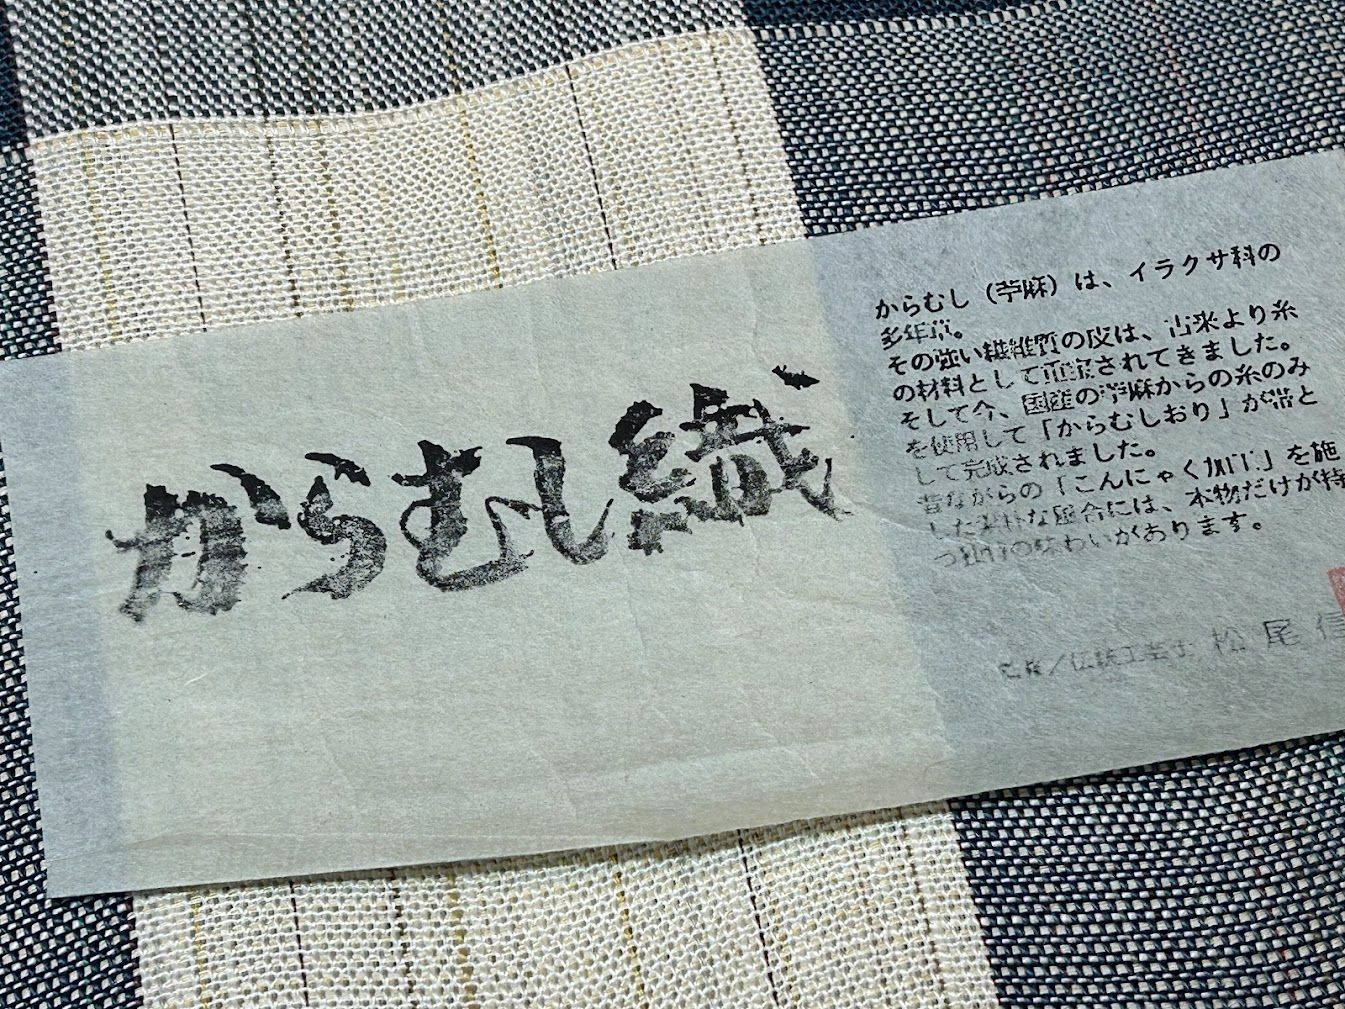 からむし織
からむし（苧麻）は、イラクサ科の
多年草。
その強い繊維質の皮は、古来より糸
の材料として重宝されてきました。
そして今、国産の苧麻からの糸のみ
を使用して「からむしおり」が帯と
して完成されました。
昔ながらの「こんにゃく加工」を施
した素朴な風合には、本物だけが持
つ独特の味わいがあります。
伝統工芸士 松尾信